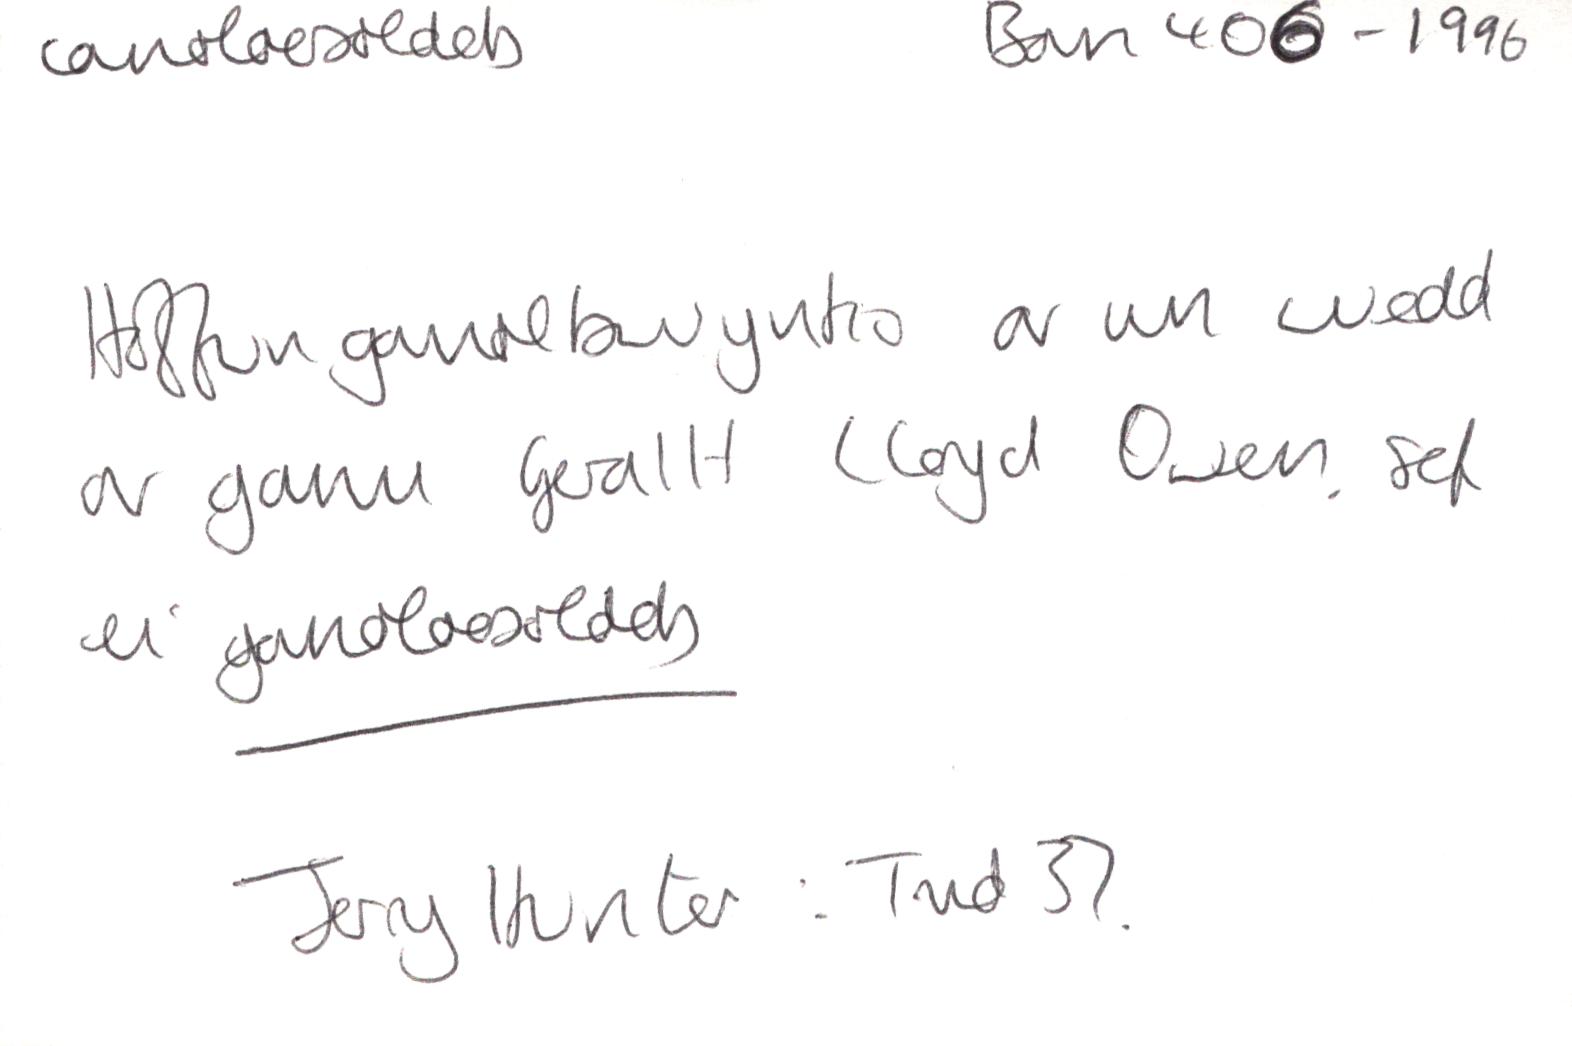 canoloesoldeb Barn 406 - 1996
Hoffwn ganolbwyntio ar un wedd
ar ganu Gerallt Lloyd Owen, sef
ei ganoloesoldeb
Jerry Hunter : Tud 37.